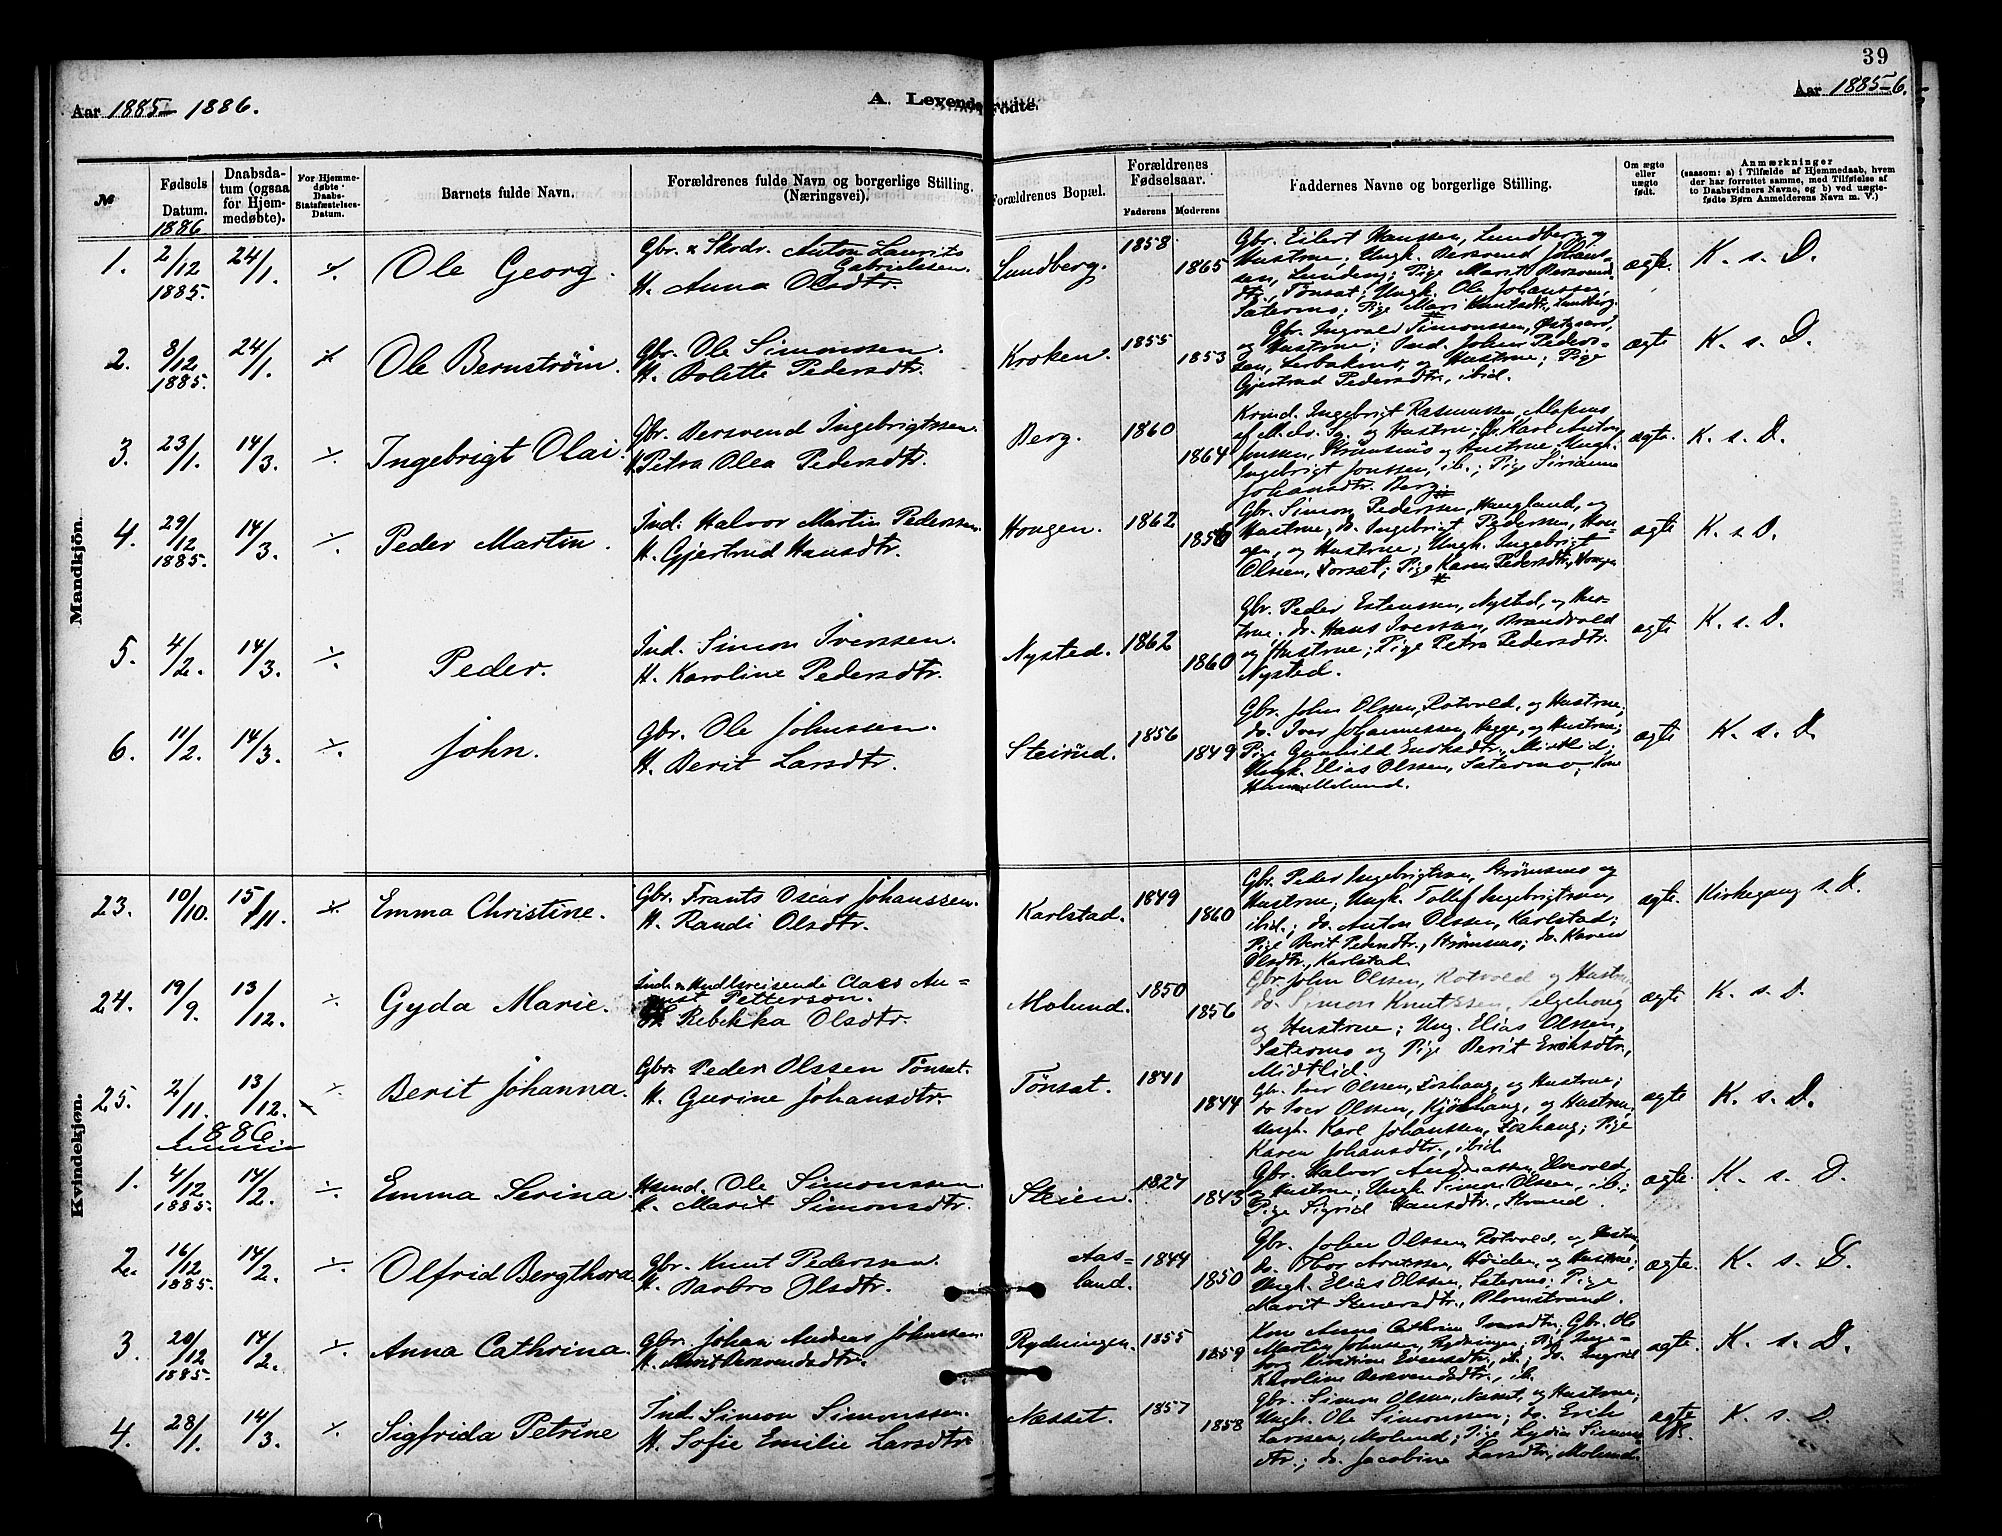 39
Aar 1885-1886.
A. Levende Fødte.
Aar 1885-6.
№
Fødsels Datum.
Daabsdatum (ogsaa for Hjemmedøbte).
For Hjemmedøbte Daabs-Stadfæstelses-Datum.
Barnets fulde Navn.
Forældrenes fulde Navn og borgerlige Stilling. (Næringsvei).
Forældrenes Bopæl.
Forældrenes Fødselsaar.
Faderens
Moderens
Faddernes Navne og borgerlige Stilling.
Om ægte eller uægte født.
Anmærkninger
(saasom: a) i Tilfælde af Hjemmedaab, hvem der har forrettet samme, med Tilføielse af to Daabsvidners Navne, og b) ved uægtefødte Børn Anmelderens Navn m. V.)
1886
Mandkjön.
1. 2/12 1885. 24/1. ./. Ole Georg.
Gbr. & Skrdr. Anton Laurits Gabrielssen.
H. Anna Olsdtr.
Lundberg. 1858. 1865
Gbr. Eilert Hanssen, Lundberg, og
Hustrue; Ungk. Bersvend Johans-
sen, Lundeng; Pige Marit Bersvend-
dtr., Tønsat; Ungk. Ole Johanssen,
Sætermo; Pige Mari Knutsdtr., Lundberg.
ægte. K. s. D.
2. 8/12 1885. 24/1. ./. Ole Bernstrøm.
Gbr. Ole Simonssen.
H. Bolette Pedersdtr.
Kroken. 1855 1853
Gbr. Ingvald Simonssen, Østgaard,
og Hustrue; Ind. John Peders-
sen, Lerbakmo, og Hustrue; Pige
Gjertrud Pedersdtr., ibid.
ægte K. s. D.
3. 23/1. 14/3. ./. Ingebrigt Olai.
Gbr. Bersvend Ingebrigtssen.
H. Petra Olea Pedersdtr.
Berg. 1860 1864
Ingebrigt Rasmussen,
og Hustrue; Karl Anton
Jonssen, Strømsmo og Hustrue; Ungk.
Ingebrigt Jonssen, ib.; Pige
Johansdtr. Berg.
ægte. K. s. D.
4. 29/12 1885. 14/3. ./. Peder Martin.
Ind. Halvor Martin Pederssen.
H. Gjertrud Hansdtr.
Hougen. 1862 1856
Gbr. Simon Pederssen, Haugland, og
Hustrue; do. Ingebrigt Pederssen, Hou-
gen, og Hustrue; Ungk. Ingebrigt
Olssen, Forsæt; Pige Karen Pedersdtr., Hougen
ægte K. s. D.
5. 4/2. 14/3. ./. Peder.
Ind. Simon Iverssen.
H. Karoline Pedersdtr.
Nysted. 1862 1860
Gbr. Peder Estenssen, Nysted, og Hus-
true. do. Hans Iverssen, Brandvold
og Hustrue; Pige Petra Pedersdtr.
Nysted.
ægte K. s. D.
6. 11/2. 14/3. ./. John.
Gbr. Ole Johnssen.
H. Berit Larsdtr.
Steirud. 1856 1849
Gbr. John Olssen, Rotvold, og Hustrue;
do. Iver Johannessen, Hegge, og Hustrue;
Pige Gunhild Eriksdtr., Midtlid;
Ungk. Elias Olssen, Sætermo; Kone
Molund.
ægte K. s. D.
Kvindekjøn.
23. 10/10. 15/11. ./. Emma Christine.
Gbr. Frants Oscar Johanssen.
H. Randi Olsdtr.
Karlstad. 1849 1860
Gbr. Peder Ingebrigtsen, Strømsmo og
Hustrue; Ungk. Tollef Ingebrigtsen,
ibid.; do. Anton Olssen, Karlstad;
Pige Berit Pedersdtr., Strømsmo; do. Karen
Olsdtr., Karlstad
ægte. Kirkegang s. D.
24. 19/9. 13/12. ./. Gyda Marie.
Ind. & Handlsreisende Claes Au-
gust Petterson.
H. Rebekka Olsdtr.
Molund. 1850 1856
Gbr. John Olssen, Rotvold og Hustrue
do. Simon Knutssen, Selgehoug
og Hustrue; Ung. Elias Olssen,
Sætermo og Pige Berit Eriksdtr.,
Midtlid.
ægte K. s. D.
25. 2/11. 13/12. ./. Berit Johanna.
Gbr. Peder Olssen Tönsat.
H. Gurine Johansdtr.
Tönsat. 1841 1844
Gbr. Iver Olssen, Foshaug, og Hustrue;
do Iver Olssen, Kjölhaug, og Hustrue;
Ungk. Karl Johanssen, Foshaug; Pige
Karen Johansdtr., ibid
ægte K. s. D.
1886.
1. 4/12 1885. 14/2. ./. Emma Serina.
Husmd. Ole Simonssen
H. Marit Simonsdtr.
Steien. 1827 1843
Gbr. Halvor Andreassen, Elvevold,
og Hustrue; Ungk. Simon Olssen, ib.;
Pige Sigrid Hansdtr., Strand
ægte. K. s. D.
2. 16/12 1885. 14/2. ./. Olfrid Bergthora
Gbr. Knut Pederssen.
H. Barbro Olsdtr.
Aas-
lund. 1844 1850
Gbr. John Olssen Rotvold, og Hustrue,
do. Thor Arnessen, Høiden, og Hustrue;
Ungk. Elias Olssen, Sætermo; Pige
Marit Stenersdtr., Blomstrand.
ægte. K. s. D.
3. 20/12 1885. 14/2. ./. Anna Cathrina.
Gbr. Johan Andreas Johnssen.
H. Marit Bersvendsdtr.
Rydningen. 1855 1859
Kone Anne Cathrine Iversdtr.; Gbr. Ole
Martin Johnsen, Rydningen; Pige Inge-
borg Kirstine Evensdtr., ib.; do. Ingrid
Karoline Bersvendsdtr., ib.
ægte. K. s. D.
4. 28/1. 14/3. ./. Sigfrida Petrine
Ind. Simon Simonssen.
H. Sofie Emilie Larsdtr.
Næsset. 1857 1858
Gbr. Simon Olssen, Næset, og Hustrue;
Ungk. Ole Simonssen; do. Erik
Larssen, Molund; Pige Lydia Simons-
dtr.; do. Jacobine Larsdtr., Molund.
ægte K. s. D.